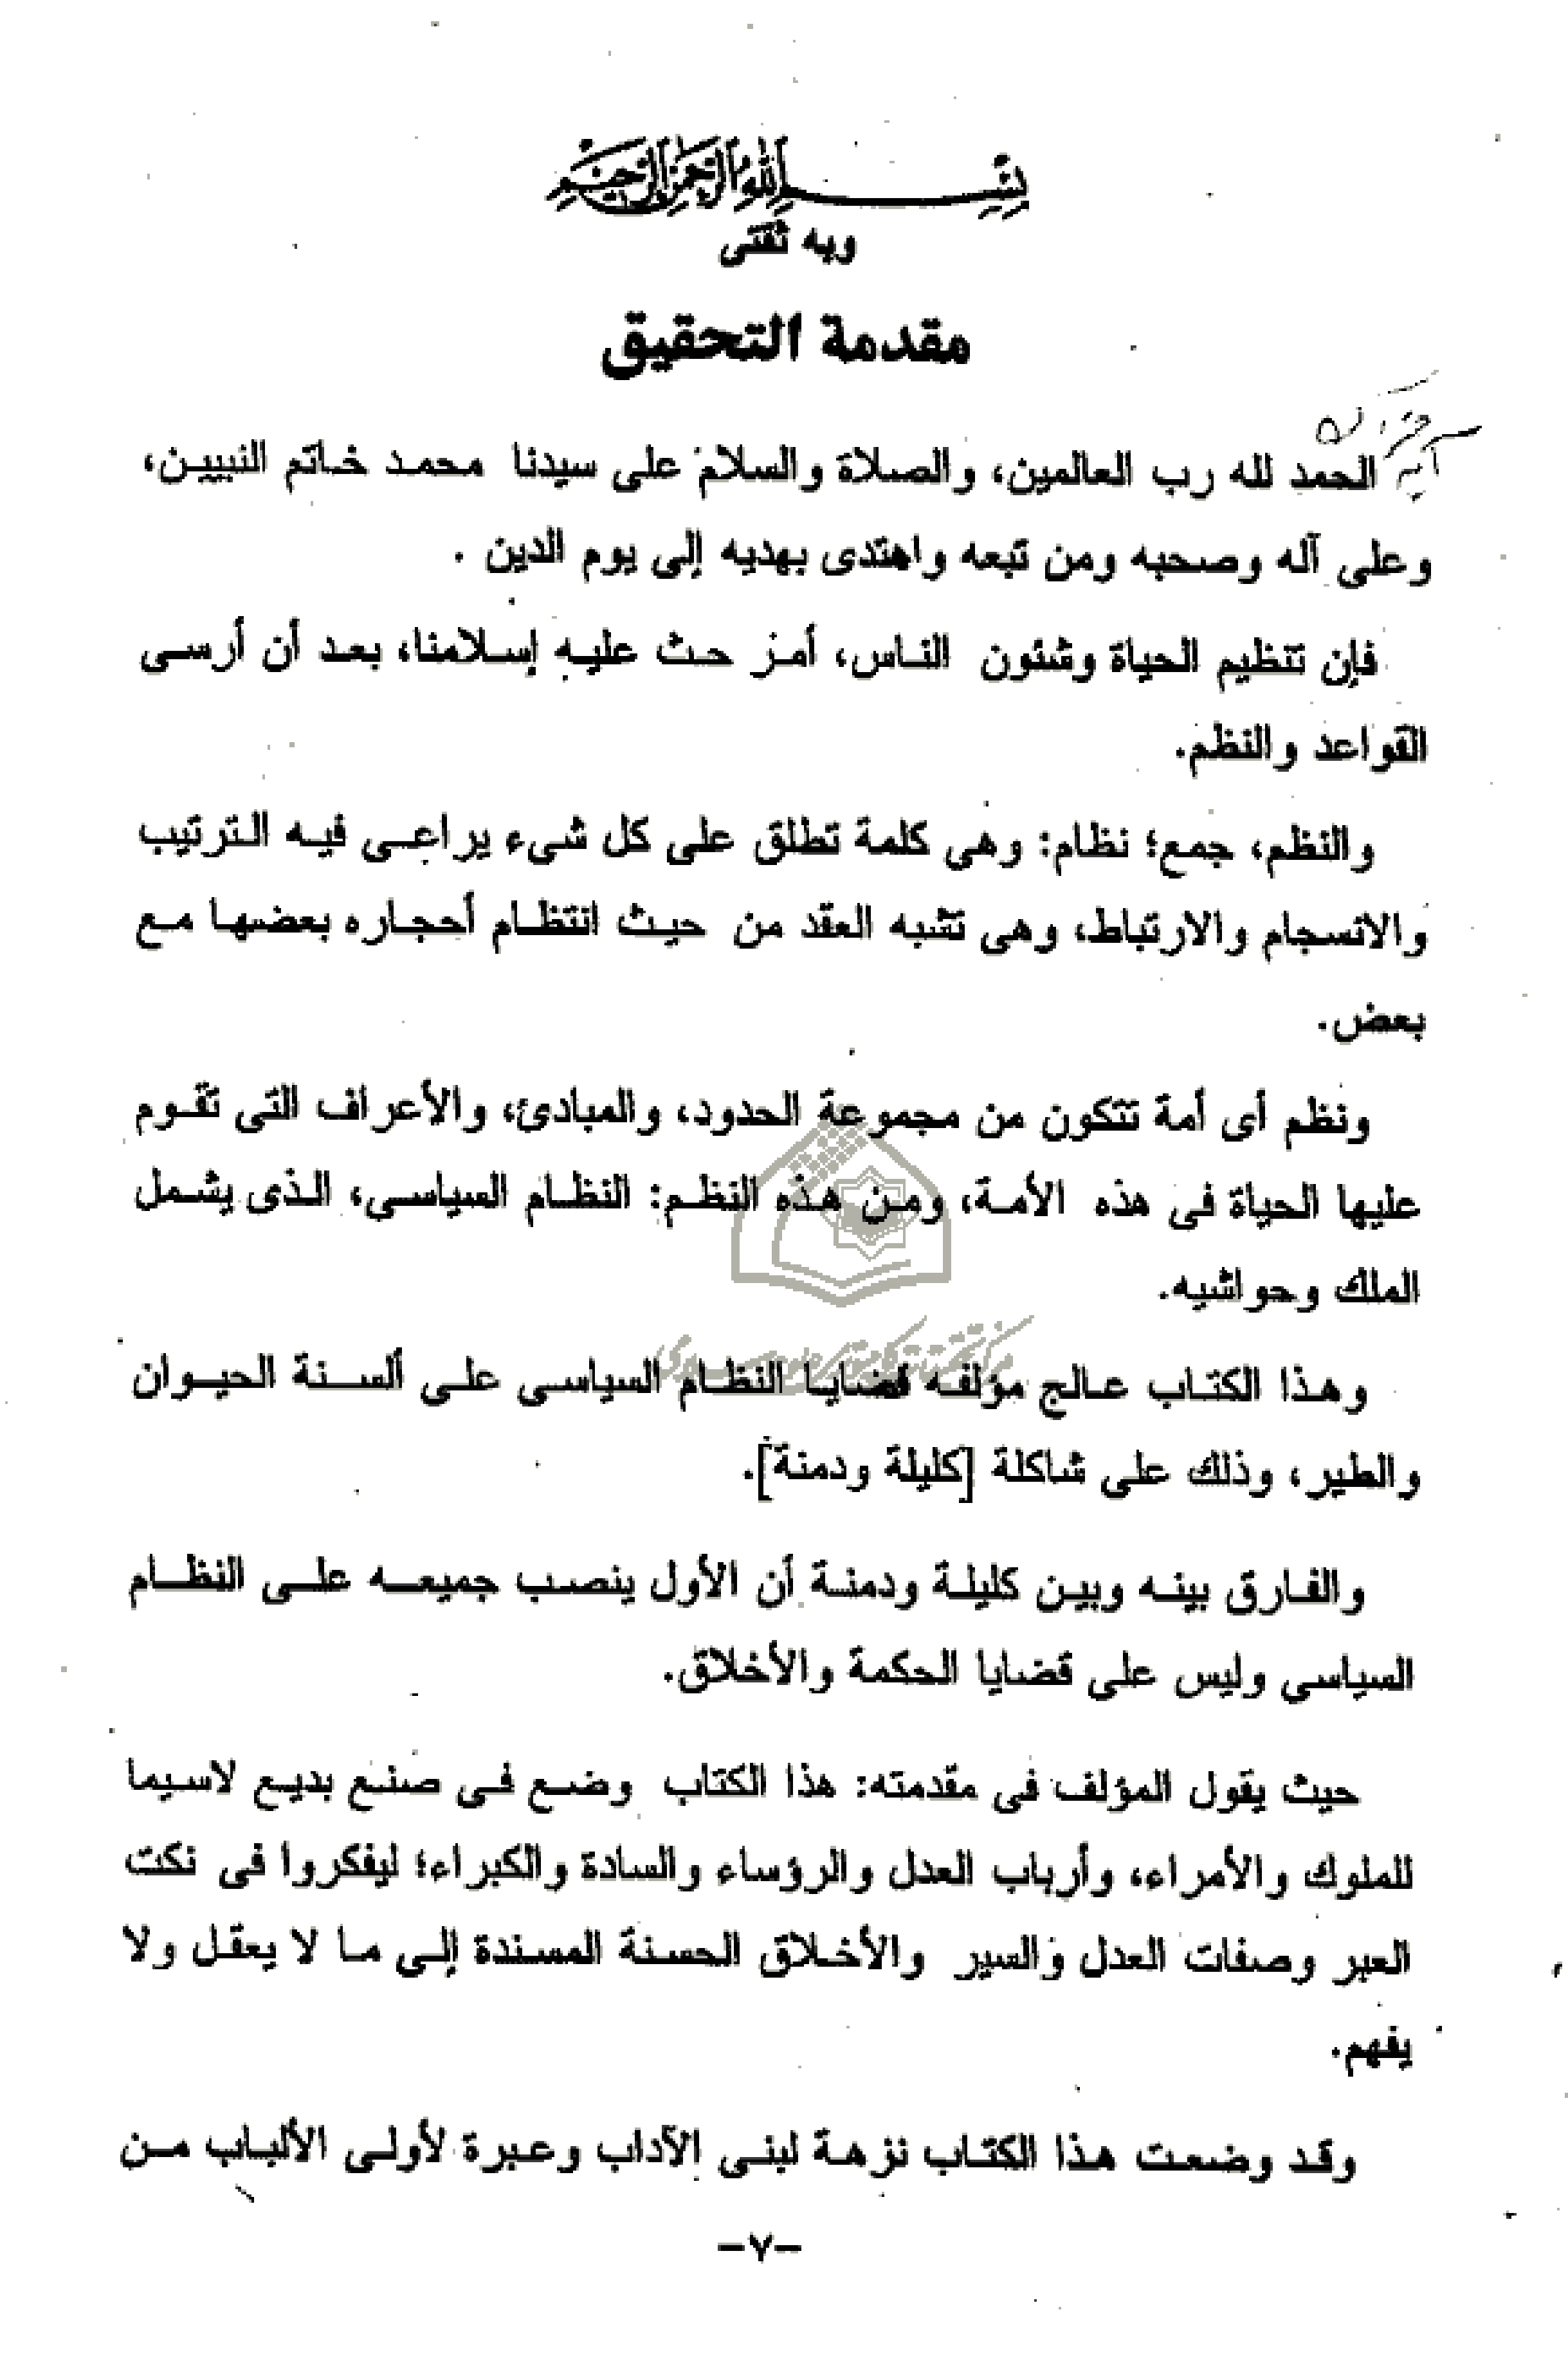 بسم الله الرحمن الرحيم
وبه ثقتى
مقدمة التحقيق
الحمد لله رب العالمين، والصلاة والسلام على سيدنا محمد خاتم النبيين،
وعلى آله وصحبه ومن تبعه واهتدى بهديه إلى يوم الدين .
فإن تنظيم الحياة وشئون الناس، أمر حث عليه إسلامنا، بعد أن أرسى
القواعد والنظم.
والنظم، جمع؛ نظام: وهى كلمة تطلق على كل شىء يراعى فيه الترتيب
والانسجام والارتباط، وهى تشبه العقد من حيث انتظام أحجاره بعضها مع
بعض.
ونظم أى أمة تتكون من مجموعة الحدود، والمبادئ، والأعراف التى تقوم
عليها الحياة فى هذه الأمة، ومن هذه النظم: النظام السياسى، الذى يشمل
الملك وحواشيه.
وهذا الكتاب عالج مؤلفه قضايا النظام السياسى على ألسنة الحيوان
والطير، وذلك على شاكلة [كليلة ودمنة].
والفارق بينه وبين كليلة ودمنة أن الأول ينصب جميعه على النظام
السياسى وليس على قضايا الحكمة والأخلاق.
حيث يقول المؤلف فى مقدمته: هذا الكتاب وضع فى صنع بديع لاسيما
للملوك والأمراء، وأرباب العدل والرؤساء والسادة والكبراء؛ ليفكروا فى نكت
العبر وصفات العدل والسير والأخلاق الحسنة المسندة إلى ما لا يعقل ولا
يفهم.
وقد وضعت هذا الكتاب نزهة لبنى الآداب وعبرة لأولى الألباب من
-٧-